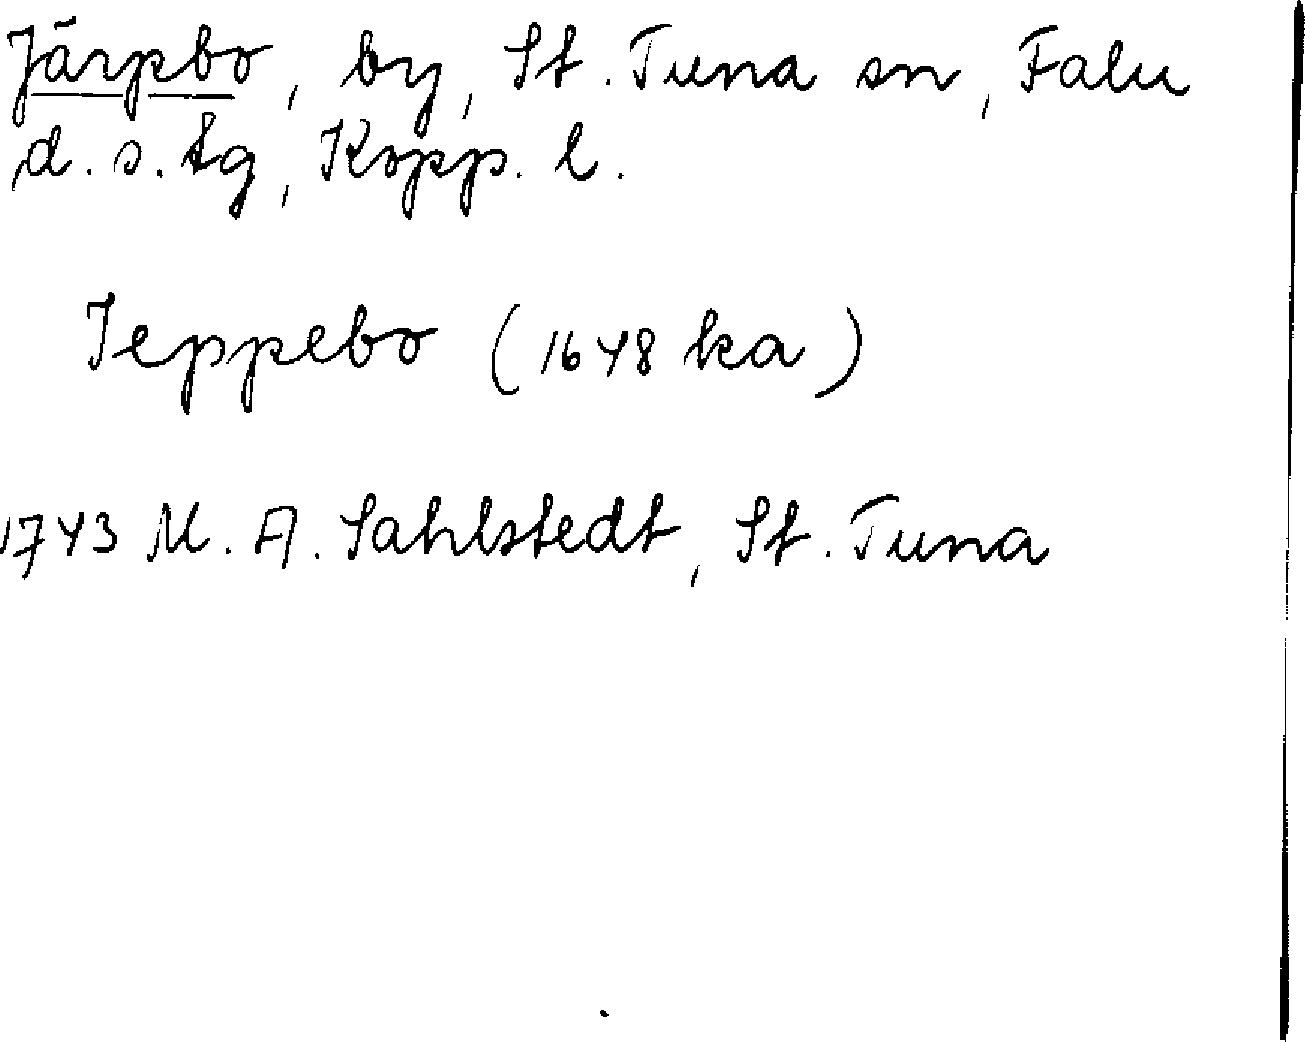 Järpbo, by, St. Tuna sn, Falu
d. s. tg, Kopp. l.
Jeppebo (1648 ka)
1743 M. A. Sahlstedt, St. Tuna